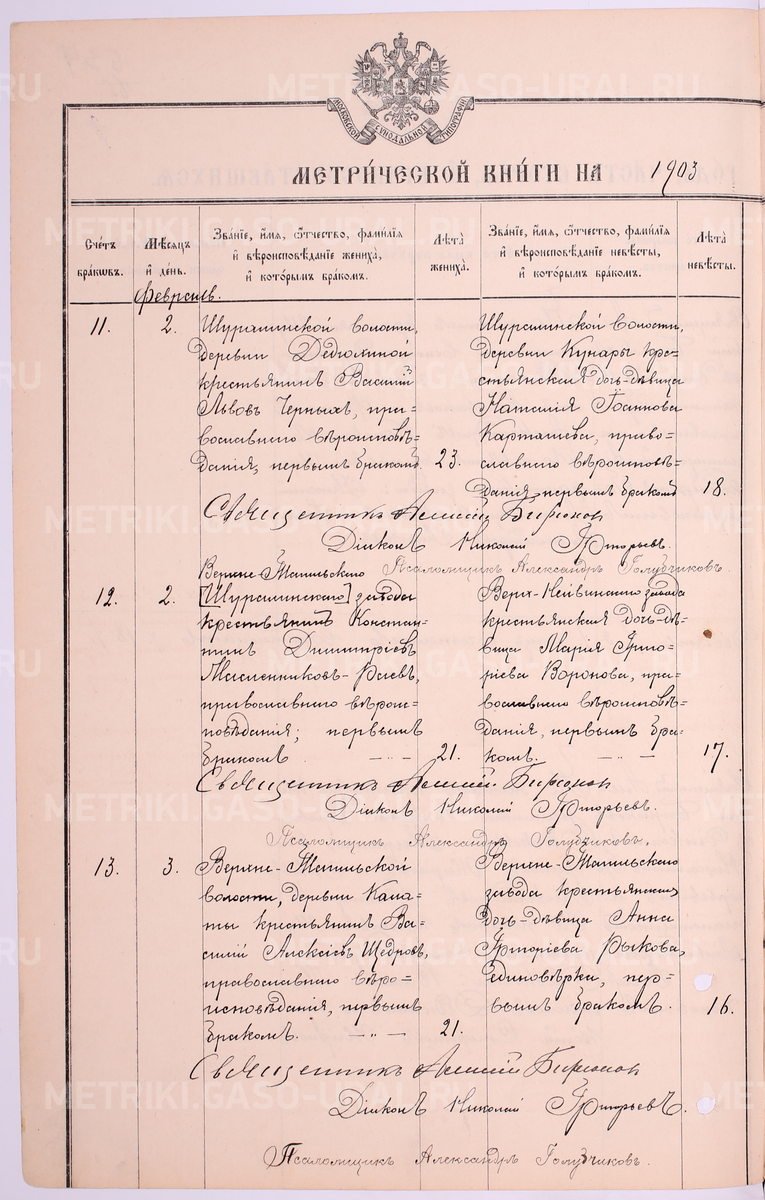 МОСКОВСКОЙ СѴНОДАЛЬНОЙ ТИПОГРАФІИ
МЕТРИ́ЧЕСКОЙ КНИ́ГИ НА 1903
Сче́тъ бра́кѡвъ.
Мѣ́сяцъ и҆ де́нь.
Зва́нїе, и҆́мя, ѻ҆́тчество, фами́лїя и҆ вѣроисповѣ́данїе жениха̀, и҆ кото́рымъ бра́комъ.
Лѣта̀ жениха̀.
Зва́нїе, и҆́мя, ѻ҆́тчество, фами́лїя и҆ вѣроисповѣ́данїе невѣ́сты, и҆ кото́рымъ бра́комъ.
Лѣта̀ невѣ́сты.
Февраль.
11.
2.
Шуралинской волости,
деревни Дедюхиной
крестьянинъ Василій
Львовъ Черныхъ, пра-
вославнаго вѣроисповѣ-
данія, первымъ бракомъ.
23.
Шуралинской волости,
деревни Кунары кре-
стьянская дочь-дѣвица
Наталія Іоаннова
Карташева, право-
славнаго вѣроисповѣ-
данія, первымъ бракомъ
18.
Священникъ
Діаконъ Николай Григорьевъ.
Псаломщикъ Александръ Голубчиковъ.
12.
2.
Верхне-Тагильскаго
[Шуралинскаго] завода
крестьянинъ Констан-
тинъ Димитріевъ
Масленниковъ-Раевъ,
православнаго вѣроис-
повѣданія; первымъ
бракомъ
21.
Верх-Нейвинскаго завода
крестьянская дочь-дѣ-
вица Марія Григо-
ріева Воронова, пра-
вославнаго вѣроисповѣ-
данія, первымъ бра-
комъ.
17.
Священникъ
Діаконъ Николай Григорьевъ.
Псаломщикъ Александръ Голубчиковъ.
13.
3.
Верхне-Тагильской
волости, деревни Кала-
ты крестьянинъ Ва-
силій Алексіевъ Щедровъ,
православнаго вѣро-
исповѣданія, первымъ
бракомъ.
21.
Верхне-Тагильскаго
завода крестьянская
дочь-дѣвица Анна
Григоріева Рыкова,
единовѣрка, пер-
вымъ бракомъ.
16.
Священникъ
Діаконъ Николай Григорьевъ.
Псаломщикъ Александръ Голубчиковъ.
METRIKI.GASO-URAL.RU